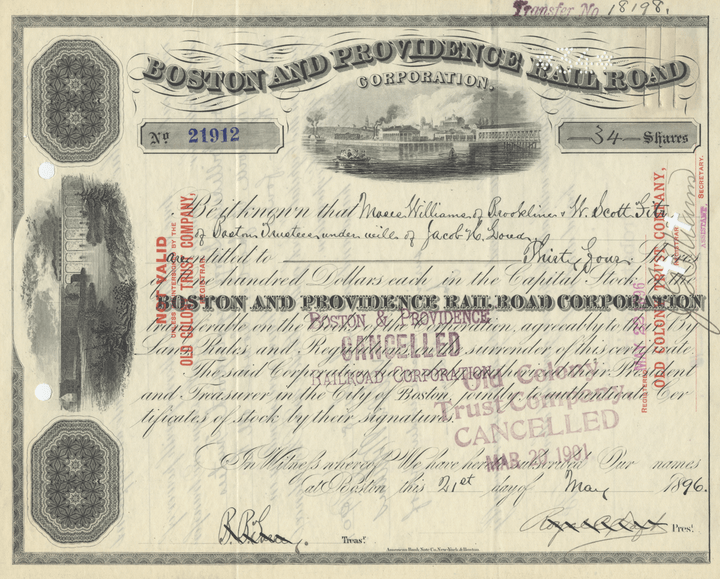 Transfer No 18198.
BOSTON AND PROVIDENCE RAIL ROAD
CORPORATION.
No 21912
34 Shares
Be it known that Moses Williams of Brookline & W. Scott Fitz
of Boston Trustees under will of Jacob H.
are entitled to Thirty Four Shares
of one hundred Dollars each in the Capital Stock of the
BOSTON AND PROVIDENCE RAIL ROAD CORPORATION
transferable in the agreeably to the By
Laws Rules and surrender of this certificate
The said Corporation President
and Treasurer in the City of Boston jointly to authenticate Cer
tificates of stock by their signature.
In Witness whereof We have hereunto subscribed Our names
at Boston this 21st day of May 1896.
Treasr.
Prest.
American Bank Note Co. New-York & Boston.
NOT VALID
UNLESS COUNTERSIGNED BY THE
OLD COLONY TRUST COMPANY,
REGISTRAR
BOSTON & PROVIDENCE
CANCELLED
RAILROAD CORPORATION
Old Colony
Trust Company
CANCELLED
MAR 20 1901
REGISTERED
OLD COLONY TRUST COMPANY,
ASSISTANT
SECRETARY.